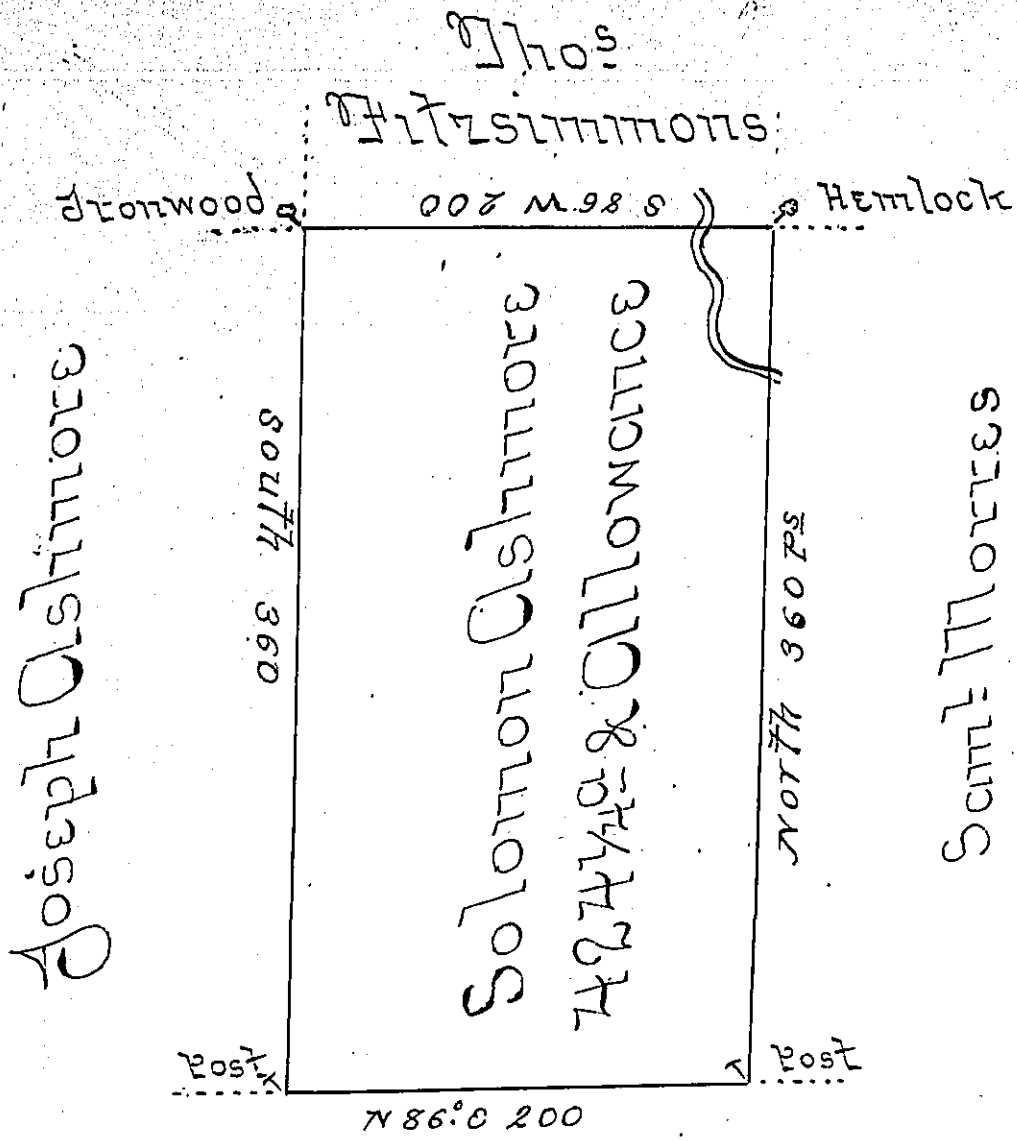 Thos
Fitzsimmons
Ironwood
S 86 W 200
Hemlock
Joseph Ashmore
South 360
Solomon Ashmore
424 1/4 a & Allowance
North 360 Ps
Saml Morres
Post
Post
N 86° E 200